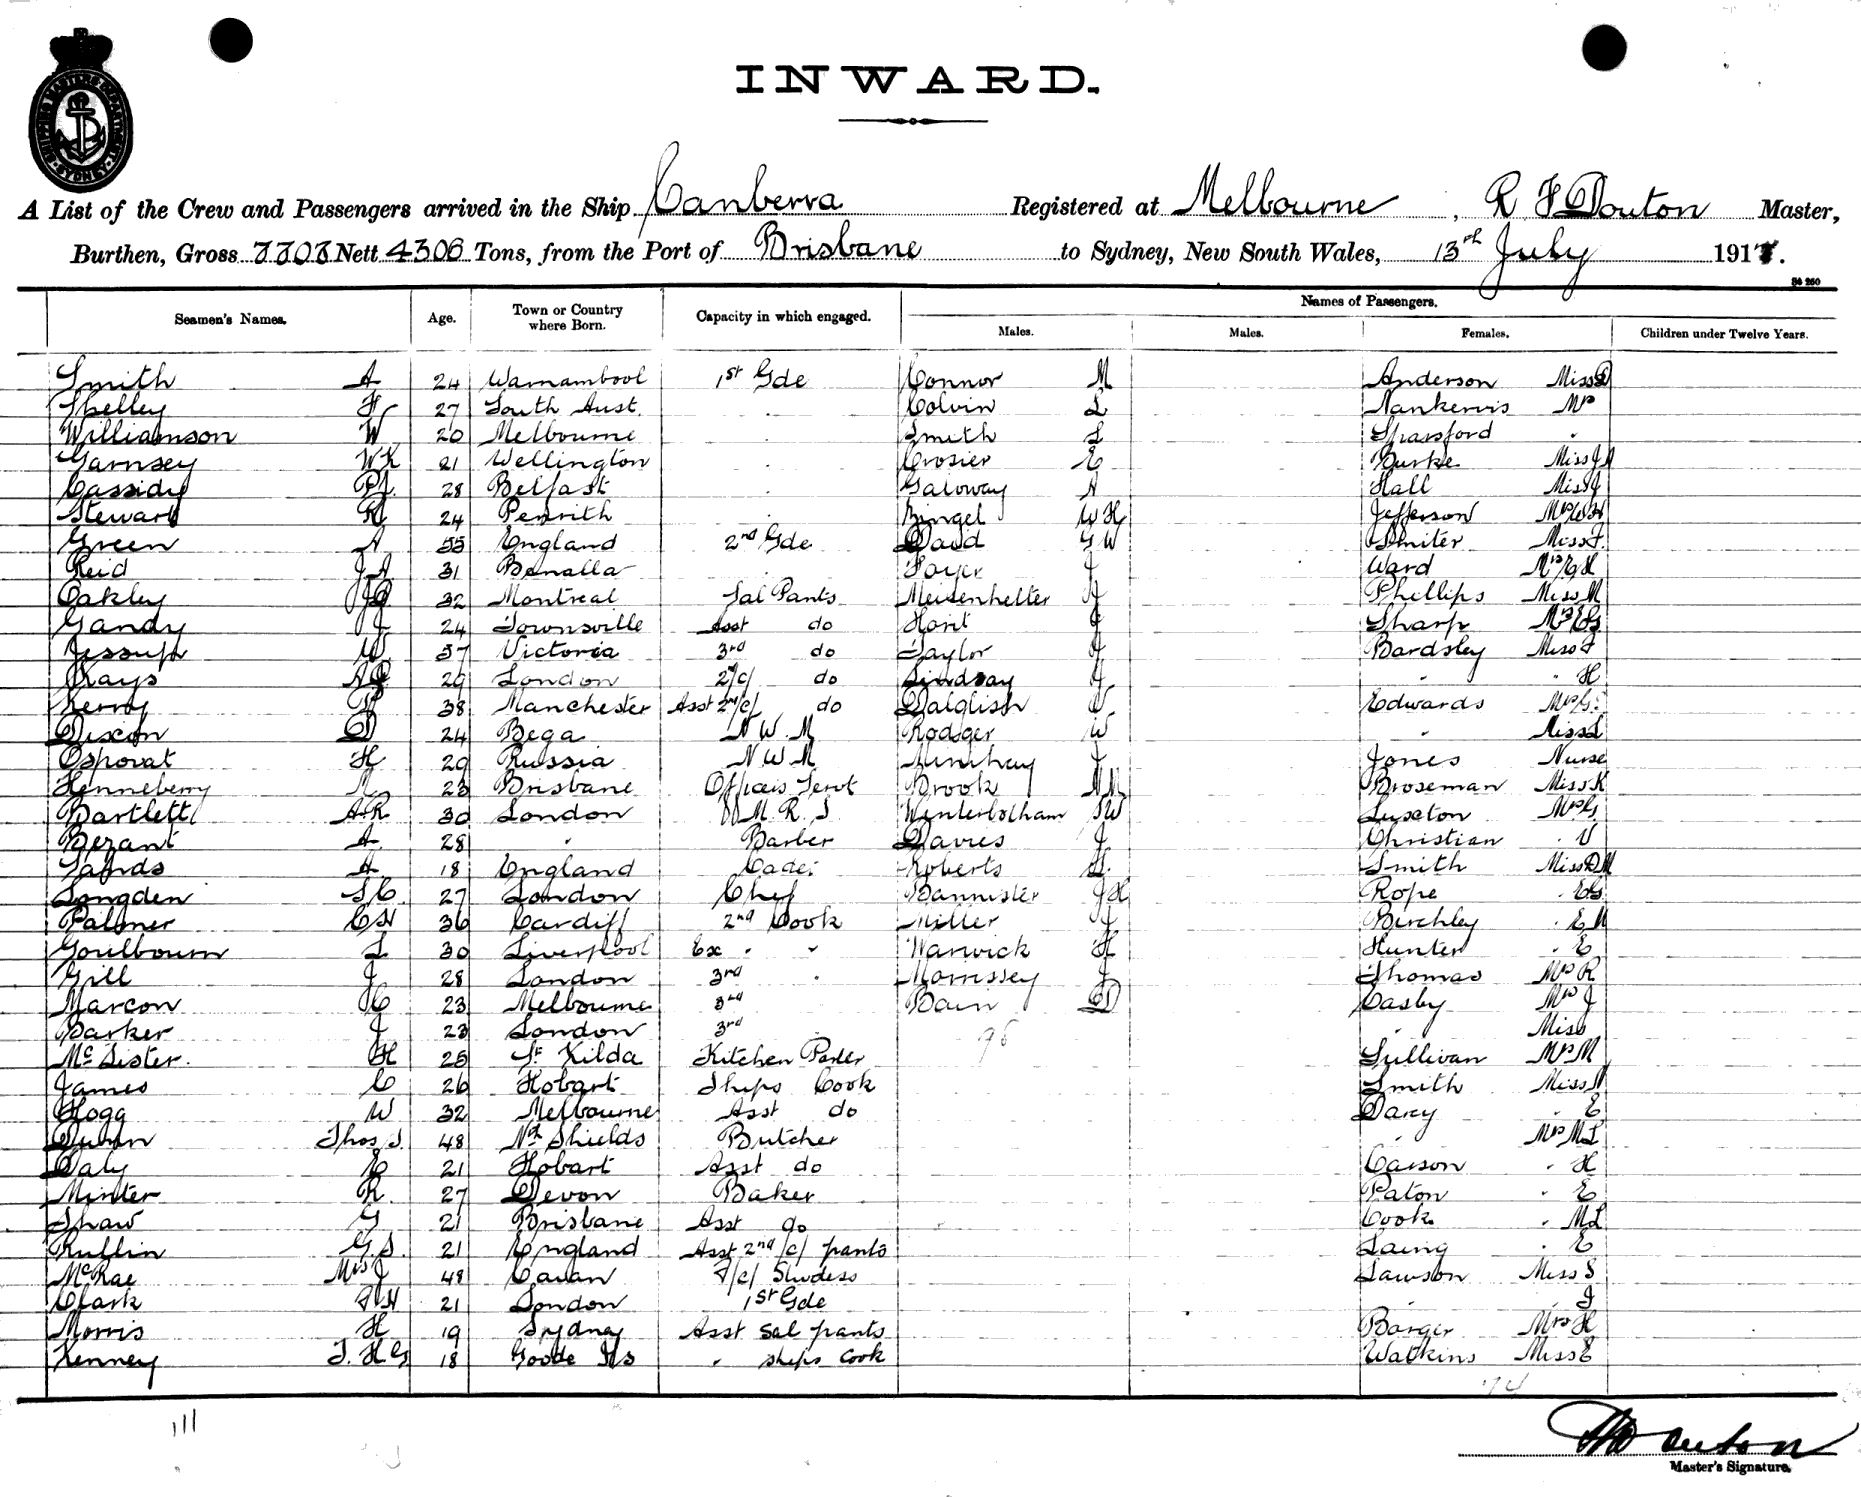 INWARD.
SHIPPING MASTERS DEPARTMENT SYDNEY
A List of the Crew and Passengers arrived in the Ship Canberra Registered at Melbourne, R F Douton Master,
Burthen, Gross 7707 Nett 4306 Tons, from the Port of Brisbane to Sydney, New South Wales, 13th July 191
Seamen's Names. Age. Town or Country where Born. Capacity in which engaged. Names of Passengers.
Males. Males. Females. Children under Twelve Years.
Smith A 24 Warnambool 1st Gde Connor M Anderson Miss D
Shelley F 27 South Aust. Colvin L Nankervis Mrs
Williamson W 20 Melbourne Smith L Sparsford
Garnsey WK 21 Wellington Crosier E Burke Miss
Cassidy PJ. 28 Belfast Galoway A Hall Miss J
Stewart R 24 Penrith Zingel WH Jefferson Mrs WH
Green A 55 England 2nd Gde David GW Miss
Reid JA 31 Benalla J Ward Mrs
Oakley 32 Montreal Sal Pants Meisenhelter A Phillips Miss M
Gandy J 24 Townsville Asst do Hont J Sharp Mrs
Jessup W 57 Victoria 3rd do Taylor Bardsley Miss
Rays 29 London 2/c/ do Lindsay J " " H
Kerry 38 Manchester Asst 2nd/c/ do Dalglish Edwards Mrs
Dixon D 24 Bega N W M Rodger W " Miss L
Osporat H 29 Russia N W M J Jones Nurse
Henneberry 23 Brisbane Officers Servt Brook Broseman Miss K
Bartlett AR 30 London M. R. S Winterbotham SW Luxton Mrs G
Bezant A. 28 " Barber Davies J Christian " V
Sands A 18 England Cadet Roberts Smith Miss DM
Longden SC 27 London Chef Bannister JH Rope " EG
Palmer CH 36 Cardiff 2nd Cook Miller J Birchley " EM
Goulbourn L 30 Liverpool Ex " " Warwick H Hunter " E
Gill J 28 London 3rd " Morrissey J Thomas Mrs R
Marcon C 23 Melbourne 3rd Bain D Casby Mrs J
Barker J 23 London 3rd 96 " Miss
McLister. H 25 St Kilda Kitchen Porter Sullivan Mrs M
James C 26 Hobart Ships Cook Smith Miss
Hogg W 32 Melbourne Asst do Darcy " E
Thos J. 48 Nth Shields Butcher " Mrs ML
Daly C 21 Hobart Asst do Carson " H
Minter R. 27 Devon Baker Paton " E
Shaw G 21 Brisbane Asst do Cook " ML
Rublin G.S. 21 England Asst 2nd/c/ pants Laing " E
McRae Mrs J 48 Cavan Lawson Miss S
Clark 21 London 1st Gde " J
Morris H 19 Sydney Asst Sal pants Barger Mrs H
Kenney 18 Goode Is " Ships Cook Watkins Miss E
74
111
Master's Signature.